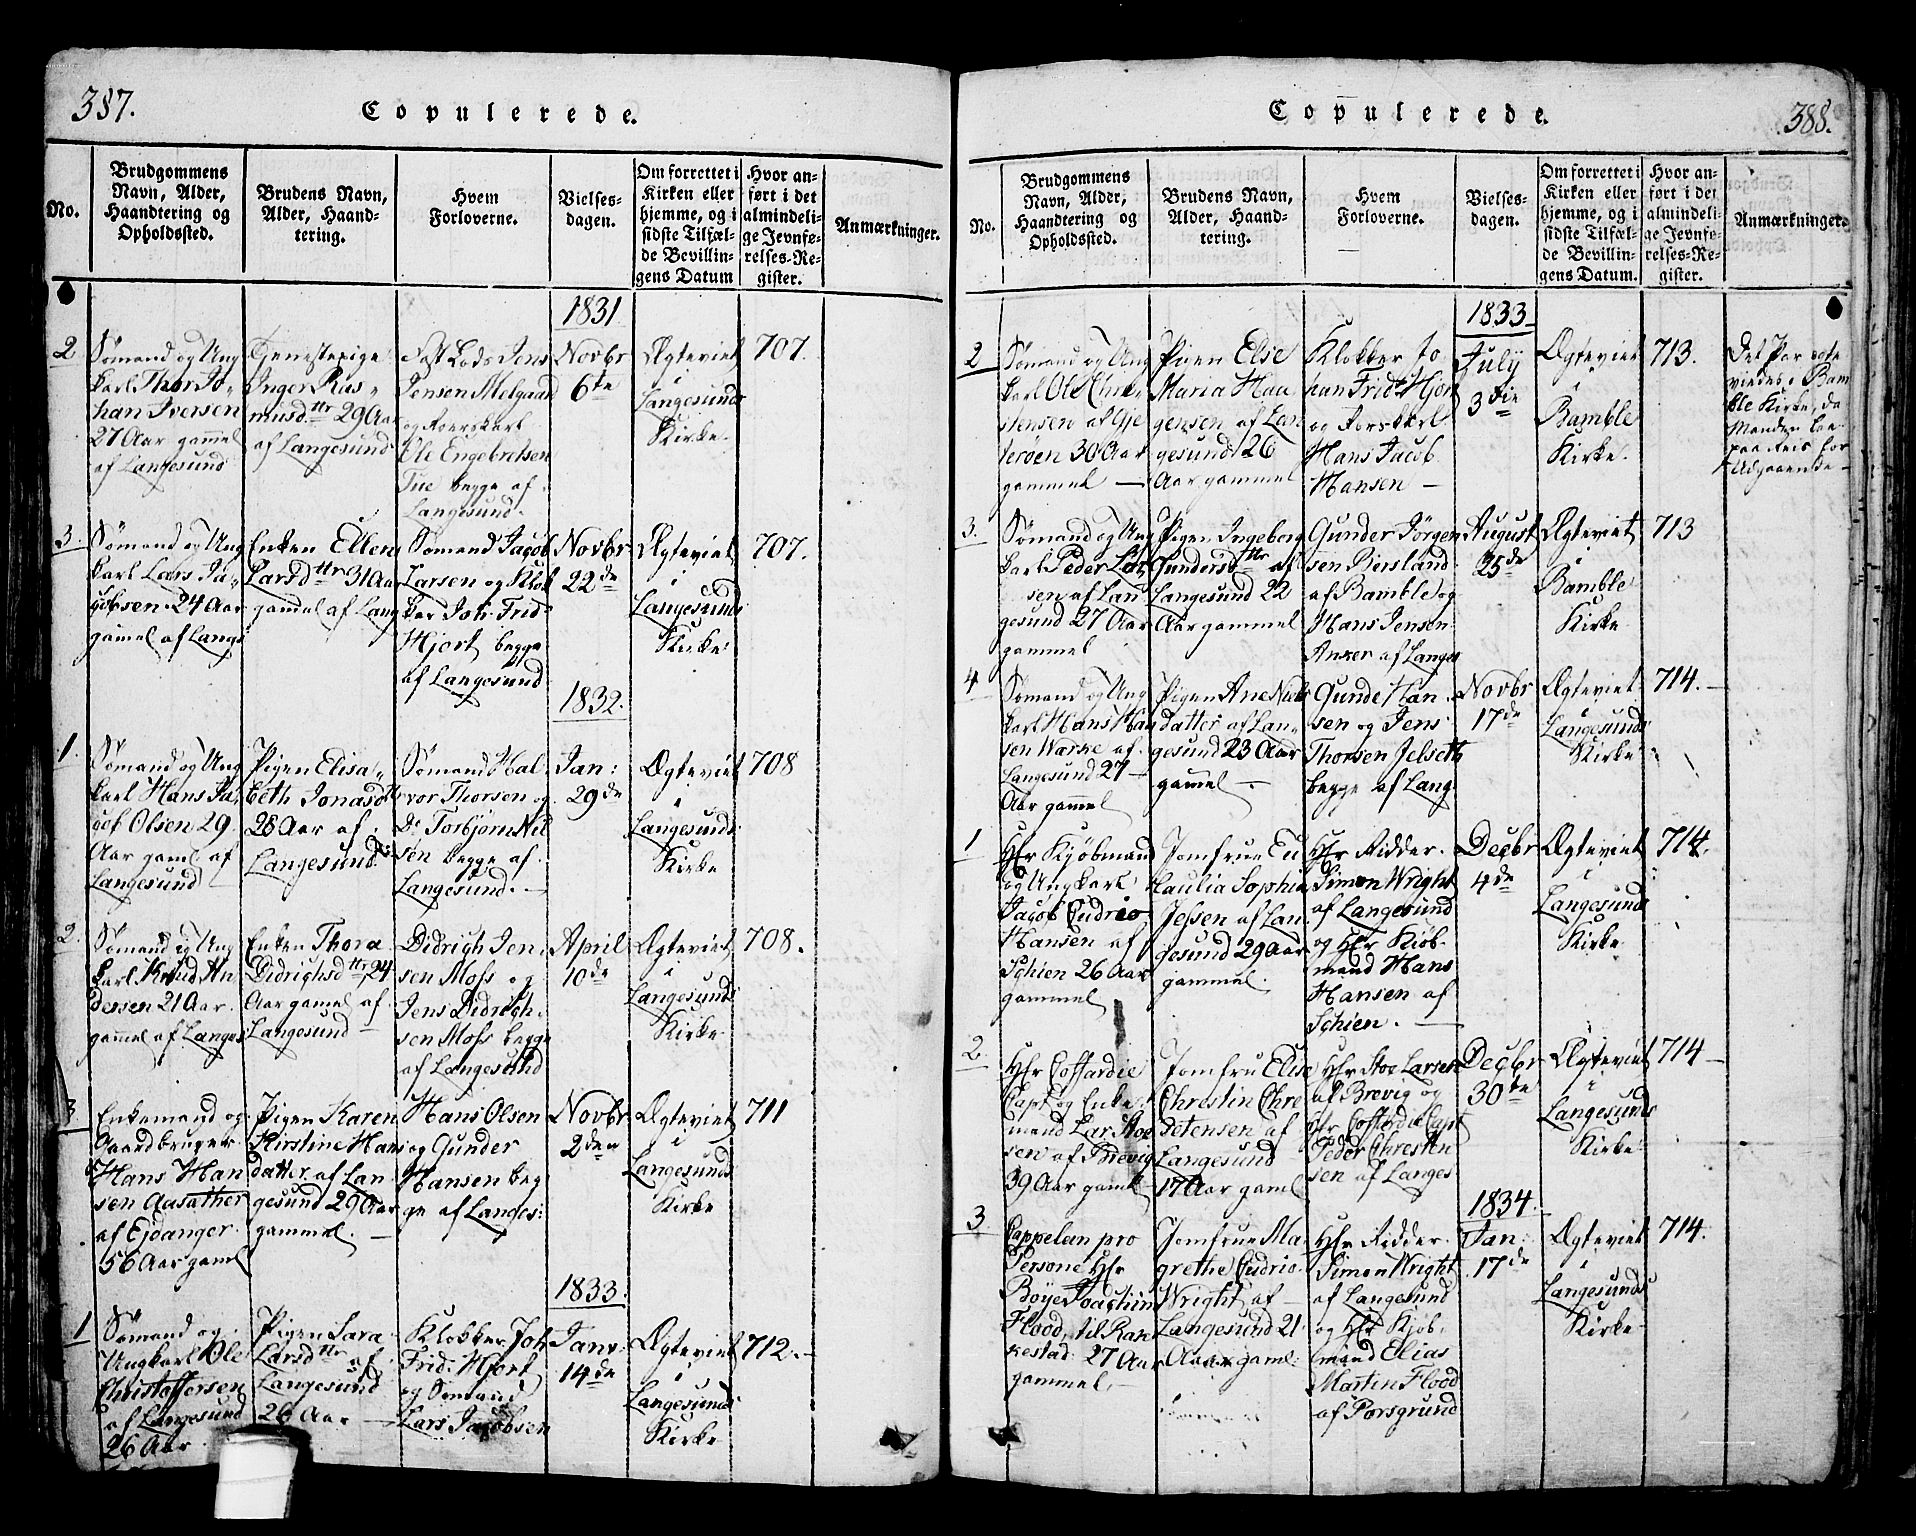 387.
Copulerede.
No.
Brudgommens
Navn, Alder,
Haandtering og
Opholdssted.
Brudens Navn,
Alder, Haand-
tering.
Hvem
Forloverne.
Vielses-
dagen.
Om forrettet i
Kirken eller
hjemme, og i
sidste Tilfæl-
de Bevillin-
gens Datum
Hvor an-
ført i det
almindeli-
ge Jevnfø-
relses-Re-
gister.
Anmærkninger.
1831
2
Sømand og Ung
karl Thor Jo-
han Iversen
27 Aar gammel
af Langesund
Tjenestepige
Inger Ras-
musdttr 29 Aar
af Langesund
Lods Jens
Jensen Melgaard
og
Ole Engebretsen
Tue begge af
Langesund.
Novbr
6te
Ægteviet
i
Langesunds
Kirke.
707.
3.
Sømand og Ung
karl Lars Ja-
cobsen 24 Aar
gamel af Langs
Enken Ellen
Larsdttr 31 Aar
gamel af Lang
Sømand Jacob
Larsen og Klok
ker Joh: Frid:
Hjort begge
af Langesund
Novbr
22de
Ægteviet
i
Langesunds
Kirke
707.
1832.
1
Sømand og Ung
karl Hans Ja-
cob Olsen 29
Aar gaml af
Langesund
Pigen Elisa-
beth Jonasdtt
28 Aar af
Langesund
Sømand Hal
vor Thorsen og
Do Torbjørn Nil
sen begge af
Langesund.
Jan:
29de
Ægteviet
i
Langesunds
Kirke
708
2.
Sømand og Ung
karl Knud An
dersen 21 Aar
gammel af Langes
Enken Thora
Didrichsdttr 24
Aar gamel af
Langesund
Didrigh Jen-
sen Moss og
Jens Didrigh
sen Moss begge
af Langesund
April
10de
Ægteviet
i
Langesunds
Kirke
708.
3
Enkemand og
Gaardbruger
Hans Han
sen Aasather
af Ejdanger
56 Aar gaml
Pigen Karen
Kirstine Hans
datter af Lan
gesund 29 Aar
gammel.
Hans Olsen
og Gunder
Hansen beg
ge af Langes:
Novbr
2den
Ægteviet
i
Langesunds
Kirke
711
1833.
1
Sømand og
Ungkarl Ole
Christoffersen
af Langesund
26 Aar
Pigen Sara
Larsdttr af
Langesund
26 Aar
Klokker Joh
Frid: Hjort
og Sømand
Lars Jacobsen
Janv:
14de
Ægteviet
i
Langesunds
Kirke
712.
Copulerede.
388.
No.
Brudgommens
Navn, Alder,
Haandtering og
Opholdssted.
Brudens Navn,
Alder, Haand-
tering.
Hvem
Forloverne.
Vielses-
dagen.
Om forrettet i
Kirken eller
hjemme, og i
sidste Tilfæl-
de Bevillin-
gens Datum.
Hvor an-
ført i det
almindeli-
ge Jevnfø-
relses-Re-
gister.
Anmærkninger.
1833.
2
Sømand og Ung
karl Ole Chri-
stensen af Gje
terøen 30 Aar
gammel
Pigen Else
Maria Haa
gensen af Lan
gesund 26
Aar gammel
Klokker Jo
han Fridk Hjort
og
Hans Jacob
Hansen
July
3die
Ægteviet
i
Bamble
Kirke.
713.
Det Par
viedes i Bam
ble Kirke, da
Manden
paa Reis for
Udgaaende
3.
Sømand og Ung
karl Peder Lar
sen af Lan
gesund 27 Aar
gammel
Pigen Ingeborg
Gundersdttr af
Langesund 22
Aar gammel
Gunder Jørgen
sen Bierland
af Bamble og
Hans Jensen
Anker af Langes
August
25de
Ægteviet
i
Bamble
Kirke
713
4
Sømand og Ung
karl Hans Han
sen Warke af
Langesund 27
Aar gammel
Pigen Ane Niels
datter af Lan-
gesund 23 Aar
gamel
Gunde Han
sen og Jens
Thorsen Jelseth
begge af Lang
Novbr
17de
Ægteviet
i
Langesunds
Kirke
714.
1
Hr Kjøbmand
og Ungkarl
Jacob Cudrio
Hansen af
Schien 26 Aar
gammel
Jomfrue Eu
laulia Sophia
Jessen af Lan
gesund 29 Aar
gammel.
Hr Ridder
Simon Wright
af Langesund
og Hr Kiøb-
mand Hans
Hansen af
Schien.
Decbr
4de
Ægteviet
i
Langesunds
Kirke
714.
2.
Hr Coffardie
Capt og Enke
mand Lar Stoe
sen af Brevig
39 Aar gaml
Jomfru Elise
Chrestin Chre
stensen af
Langesund
17 Aar gaml
Hr Stoe Larsen
af Brevig og
Hr Coffardie Capt
Peder Chresten
sen af Langes
Decbr
30te
Ægteviet
i
Langesunds
Kirke
714
1834.
3
Cappelan pro
Persone Hr
Bøye Joachim
Flood, til Ran
kestad 27 Aar
gammel,
Jomfrue Ma
grethe Cudrio
Wright af
Langesund 21
Aar gaml:
Hr Ridder
Simon Wright
af Langesund
og Hr Kjøb
mand Elias
Martin Flood
af Porsgrund
Jan:
17de
Ægteviet
i
Langesunds
Kirke
714.